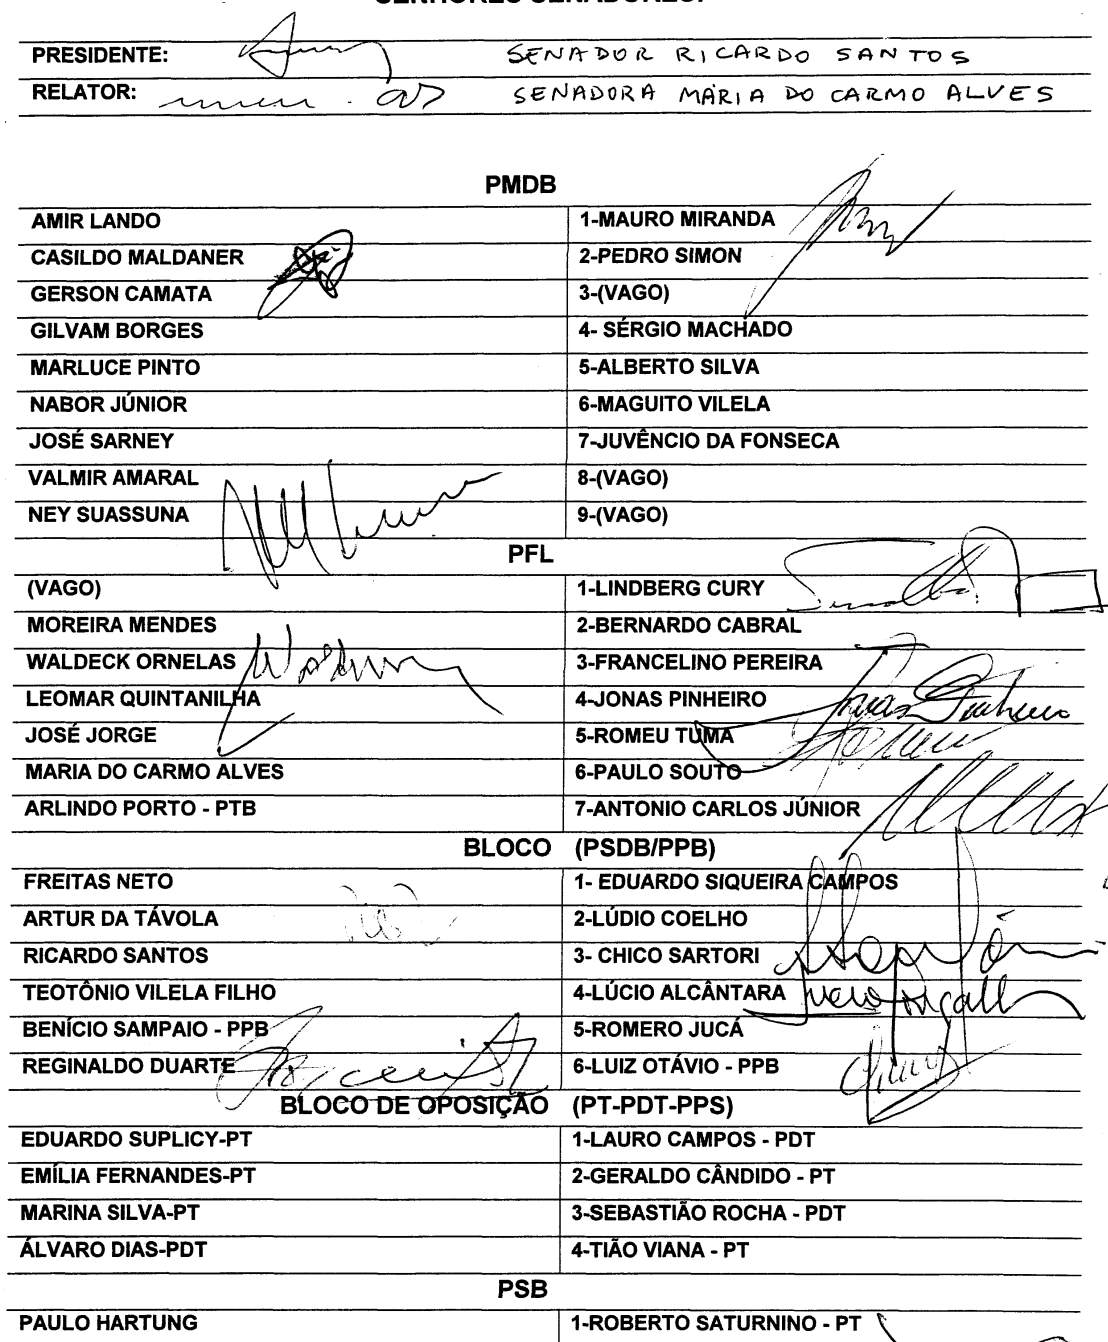 SENHORES SENADORES:
PRESIDENTE: SENADOR RICARDO SANTOS
RELATOR: SENADORA MARIA DO CARMO ALVES
PMDB
AMIR LANDO 1-MAURO MIRANDA
CASILDO MALDANER 2-PEDRO SIMON
GERSON CAMATA 3-(VAGO)
GILVAM BORGES 4- SÉRGIO MACHADO
MARLUCE PINTO 5-ALBERTO SILVA
NABOR JÚNIOR 6-MAGUITO VILELA
JOSÉ SARNEY 7-JUVÊNCIO DA FONSECA
VALMIR AMARAL 8-(VAGO)
NEY SUASSUNA 9-(VAGO)
PFL
(VAGO) 1-LINDBERG CURY
MOREIRA MENDES 2-BERNARDO CABRAL
WALDECK ORNELAS 3-FRANCELINO PEREIRA
LEOMAR QUINTANILHA 4-JONAS PINHEIRO Jonas Pinheiro
JOSÉ JORGE 5-ROMEU TUMA
MARIA DO CARMO ALVES 6-PAULO SOUTO
ARLINDO PORTO - PTB 7-ANTONIO CARLOS JÚNIOR
BLOCO (PSDB/PPB)
FREITAS NETO 1- EDUARDO SIQUEIRA CAMPOS
ARTUR DA TÁVOLA 2-LÚDIO COELHO
RICARDO SANTOS 3- CHICO SARTORI
TEOTÔNIO VILELA FILHO 4-LÚCIO ALCÂNTARA
BENÍCIO SAMPAIO - PPB 5-ROMERO JUCÁ
REGINALDO DUARTE 6-LUIZ OTÁVIO - PPB
BLOCO DE OPOSIÇÃO (PT-PDT-PPS)
EDUARDO SUPLICY-PT 1-LAURO CAMPOS - PDT
EMÍLIA FERNANDES-PT 2-GERALDO CÂNDIDO - PT
MARINA SILVA-PT 3-SEBASTIÃO ROCHA - PDT
ÁLVARO DIAS-PDT 4-TIÃO VIANA - PT
PSB
PAULO HARTUNG 1-ROBERTO SATURNINO - PT